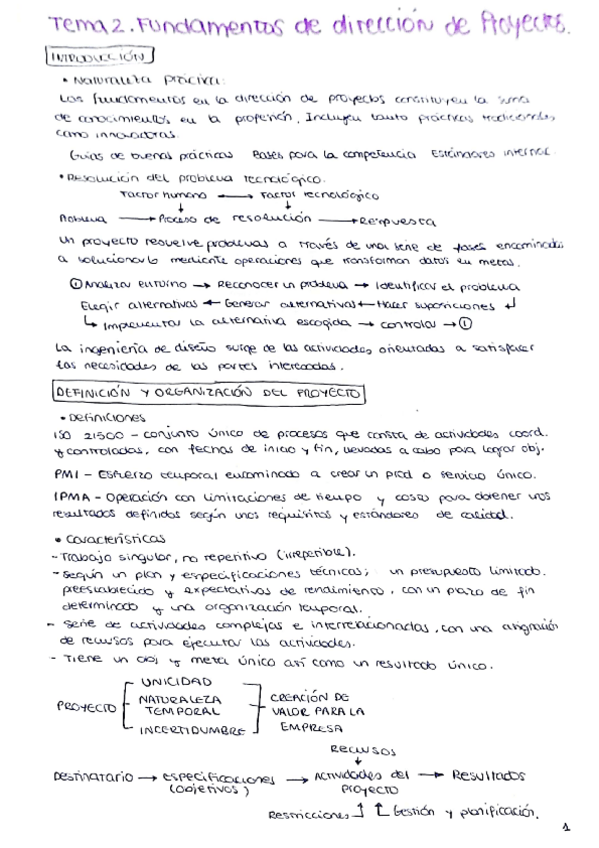 Tema 2. Fundamentos de dirección de Proyectos.
INTRODUCCIÓN
• Naturaleza práctica:
Los fundamentos en la dirección de proyectos constituyen la suma
de conocimientos en la profesión. Incluyen tanto prácticas tradicionales,
como innovadoras.
Guías de buenas prácticas Bases para la competencia Estándares internac.
• Resolución del problema tecnológico.
Factor humano → Factor tecnológico
↓ ↓
Problema → Proceso de resolución → Respuesta
Un proyecto resuelve problemas a través de una serie de fases encaminadas
a solucionarlo mediante operaciones que transforman datos en metas.
① Analizar entorno → Reconocer un problema → Identificar el problema
Elegir alternativas ← Generar alternativas ← Hacer suposiciones ↲
↳ Implementar la alternativa escogida → controlar → ①
La ingeniería de diseño surge de las actividades orientadas a satisfacer
las necesidades de las partes interesadas.
DEFINICIÓN Y ORGANIZACIÓN DEL PROYECTO
• Definiciones
ISO 21500 – conjunto único de procesos que consta de actividades coord.
y controladas, con fechas de inicio y fin, llevadas a cabo para lograr obj.
PMI – Esfuerzo temporal encaminado a crear un prod o servicio único.
IPMA – Operación con limitaciones de tiempo y costes para obtener unos
resultados definidos según unos requisitos y estándares de calidad.
• Características
- Trabajo singular, no repetitivo (irrepetible).
- Según un plan y especificaciones técnicas; un presupuesto limitado.
preestablecido y expectativas de rendimiento, con un plazo de fin
determinado y una organización temporal.
- Serie de actividades complejas e interrelacionadas, con una asignación
de recursos para ejecutar las actividades.
- Tiene un obj y meta único así como un resultado único.
UNICIDAD
PROYECTO NATURALEZA TEMPORAL CREACIÓN DE VALOR PARA LA EMPRESA
INCERTIDUMBRE
Recursos
↓
Destinatario → especificaciones (objetivos) → Actividades del proyecto → Resultados
Restricciones ↑ ↑ Gestión y planificación.
1